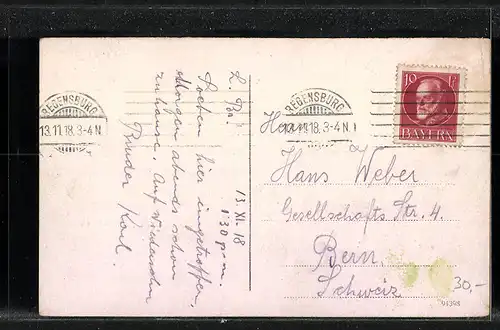 REGENSBURG
13.11.18.3-4N.
L. Br!
Soeben hier eingetroffen.
Morgen abends schon
zuhause. Auf Wiedersehn
Bruder Karl.
13. XI. 18
1'30 p.m.
REGENSBURG
13.11.18.3-4N.
10 Pf.
BAYERN
Herrn
Hans Weber
Gesellschafts Str. 4.
Bern.
Schweiz
30,-